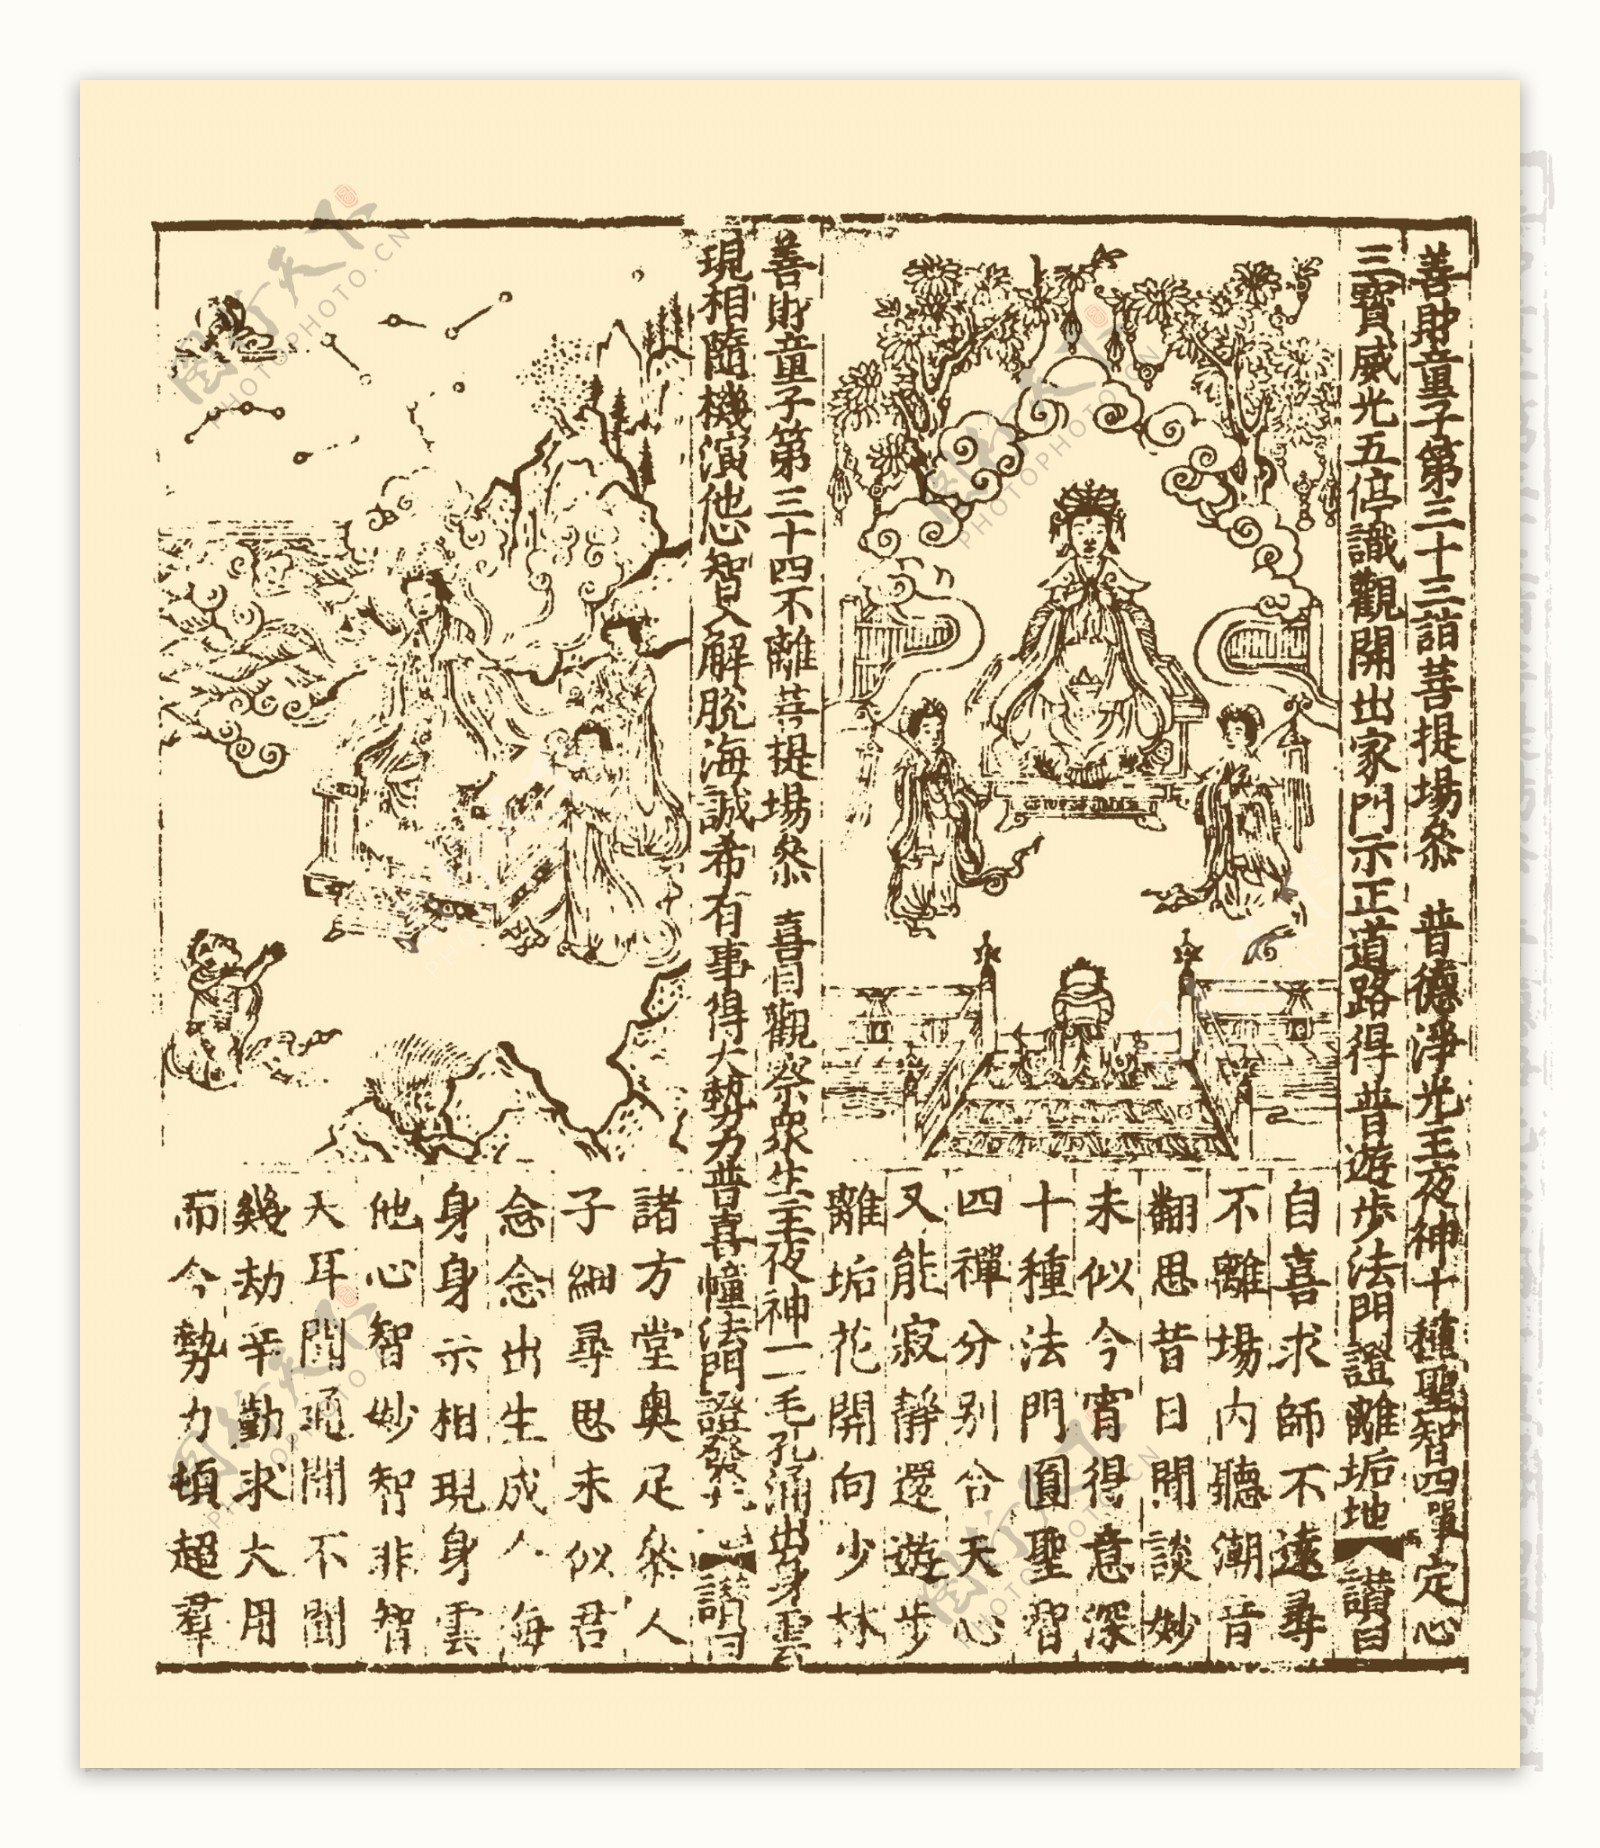 善財童子第三十三詣菩提場叅　普德淨光主夜神十種聖智四單定心
三寶威光五停識觀開出家門示正道路得　普遊步法門證離垢地【讃曰
自喜求師不遠尋
不離場内聽潮音
翻思昔日閒談妙
未似今宵得意深
十種法門圓聖智
四禪分别合天心
又能寂靜還遊步
離垢花開向少林
善財童子第三十四不離菩提場叅　喜目觀察衆生主夜神一一毛孔涌出身雲
現相隨機演他心智入解脱海誠希有事得大勢力普喜幢法門證發光【讃曰
諸方堂奥足叅人
子細尋思未似君
念念出生成人海
身身示相現身雲
他心智妙智非智
天耳聞通聞不聞
幾劫辛勤求大用
而今勢力頓超羣
圖行天下
PHOTOPHOTO.CN
圖行天下
PHOTOPHOTO.CN
圖行天下
PHOTOPHOTO.CN
圖行天下
PHOTOPHOTO.CN